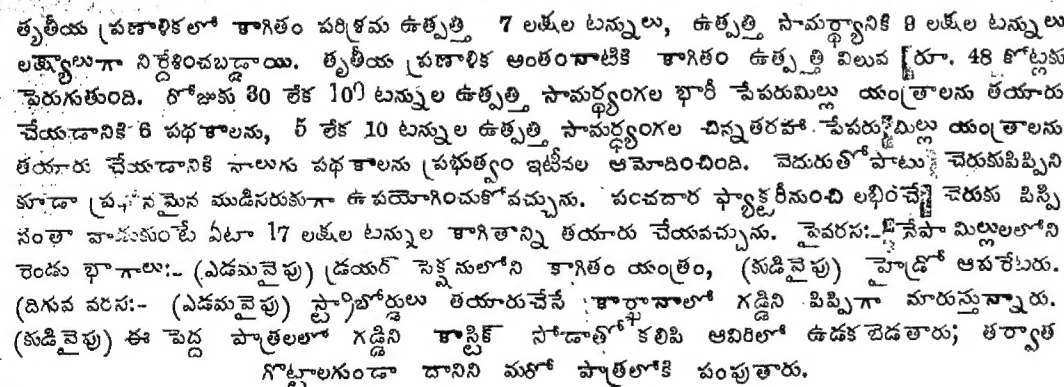 తృతీయ ప్రణాళికలో కాగితం పరిశ్రమ ఉత్పత్తి 7 లక్షల టన్నులు, ఉత్పత్తి సామర్థ్యానికి 9 లక్షల టన్నులు
లక్ష్యాలుగా నిర్దేశించబడ్డాయి. తృతీయ ప్రణాళిక అంతంనాటికి కాగితం ఉత్పత్తి విలువ రూ. 48 కోట్లకు
పెరుగుతుంది. రోజుకు 80 లేక 100 టన్నుల ఉత్పత్తి సామర్థ్యంగల భారీ పేపరుమిల్లు యంత్రాలను తయారు
చేయడానికి 6 పథకాలను, 5 లేక 10 టన్నుల ఉత్పత్తి సామర్థ్యంగల చిన్నతరహా పేపరుమిల్లు యంత్రాలను
తయారు చేయడానికి నాలుగు పథకాలను ప్రభుత్వం ఇటీవల ఆమోదించింది. వెదురుతోపాటు చెరుకుపిప్పిని
కూడా ప్రధానమైన ముడిసరుకుగా ఉపయోగించుకోవచ్చును. పంచదార ఫ్యాక్టరీనుంచి లభించే చెరుకు పిప్పి
నంతా వాడుకుంటే ఏటా 17 లక్షల టన్నుల కాగితాన్ని తయారు చేయవచ్చును. పైవరస:- నేపా మిల్లులలోని
రెండు భాగాలు:- (ఎడమవైపు) డ్రయర్ సెక్షనులోని కాగితం యంత్రం, (కుడివైపు) హైడ్రో ఆపరేటరు.
(దిగువ వరస:- (ఎడమవైపు) స్ట్రాబోర్డులు తయారుచేసే కార్ఖానాలో గడ్డిని పిప్పిగా మారుస్తున్నారు.
(కుడివైపు) ఈ పెద్ద పాత్రలలో గడ్డిని కాస్టిక్ సోడాతో కలిపి ఆవిరిలో ఉడకబెడతారు; తర్వాత
గొట్టాలగుండా దానిని మరో పాత్రలోకి పంపుతారు.